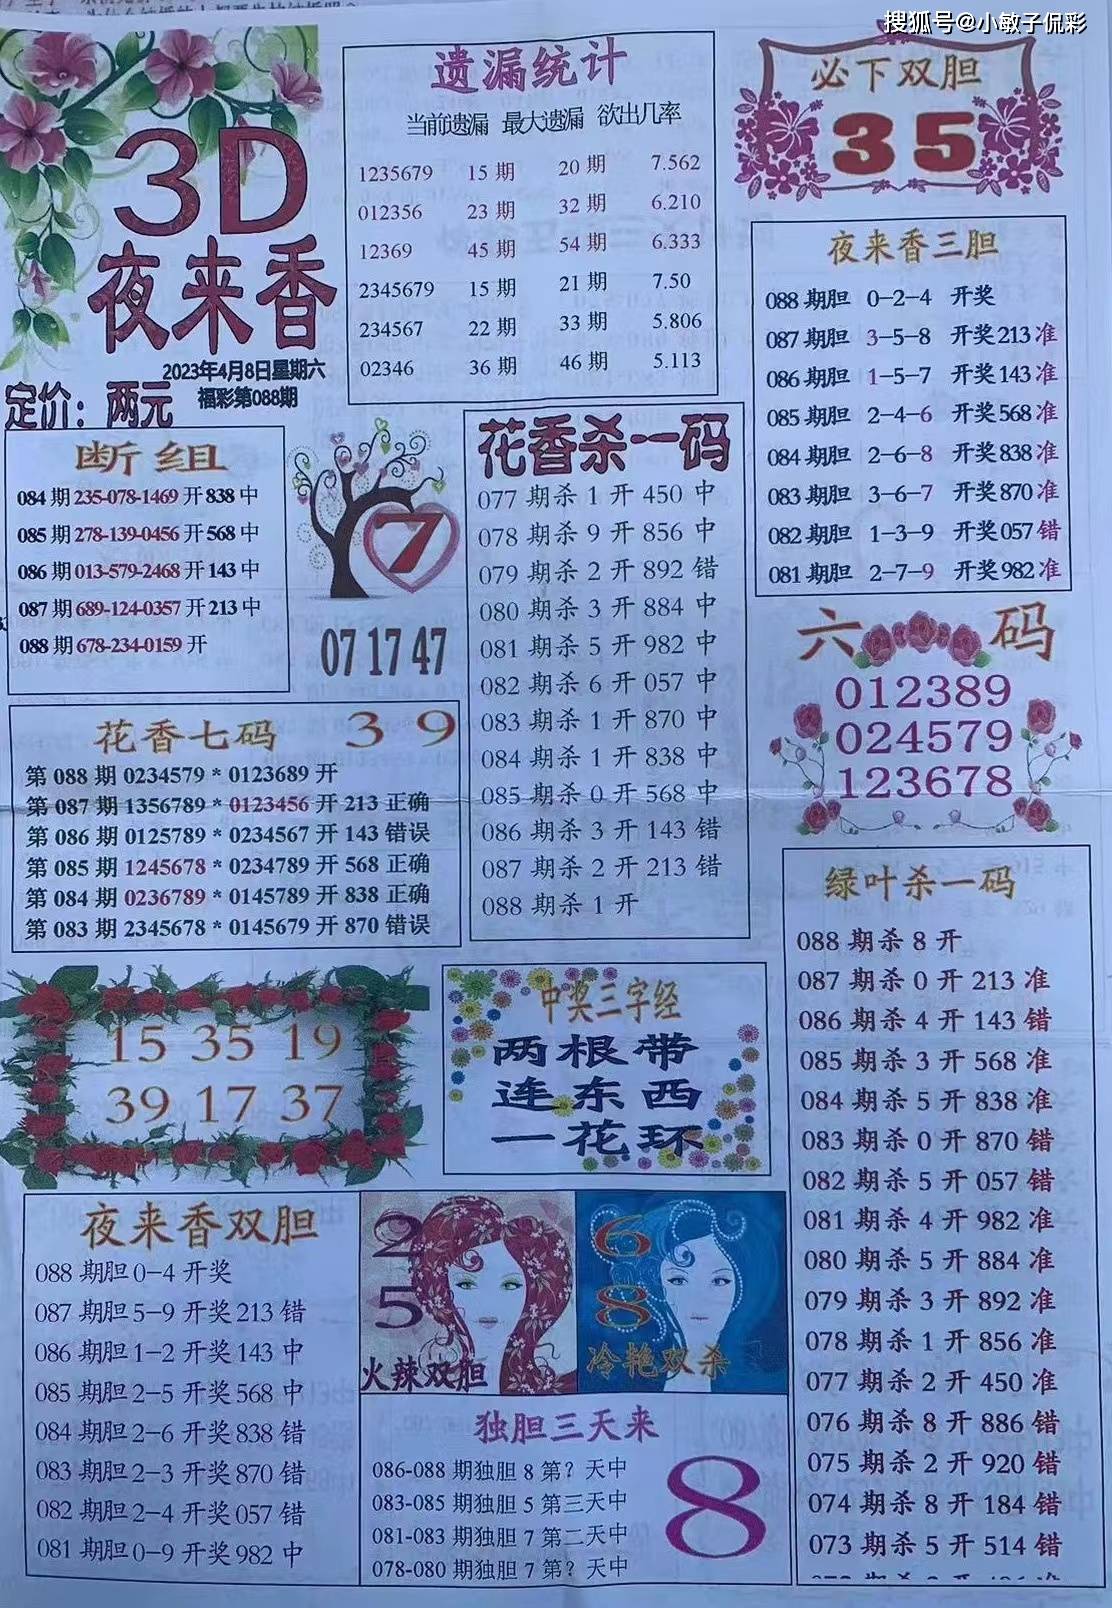 搜狐号@小敏子侃彩
3D
夜来香
2023年4月8日星期六
福彩第088期
定价：两元
遗漏统计
当前遗漏 最大遗漏 欲出几率
1235679 15期 20期 7.562
012356 23期 32期 6.210
12369 45期 54期 6.333
2345679 15期 21期 7.50
234567 22期 33期 5.806
02346 36期 46期 5.113
必下双胆
35
夜来香三胆
088期胆 0-2-4 开奖
087期胆 3-5-8 开奖213准
086期胆 1-5-7 开奖143准
085期胆 2-4-6 开奖568准
084期胆 2-6-8 开奖838准
083期胆 3-6-7 开奖870准
082期胆 1-3-9 开奖057错
081期胆 2-7-9 开奖982准
断组
084期235-078-1469开838中
085期278-139-0456开568中
086期013-579-2468开143中
087期689-124-0357开213中
088期678-234-0159开
7
07 17 47
花香杀一码
077期杀1开450中
078期杀9开856中
079期杀2开892错
080期杀3开884中
081期杀5开982中
082期杀6开057中
083期杀1开870中
084期杀1开838中
085期杀0开568中
086期杀3开143错
087期杀2开213错
088期杀1开
六码
012389
024579
123678
花香七码 39
第088期 0234579 * 0123689 开
第087期 1356789 * 0123456 开 213 正确
第086期 0125789 * 0234567 开 143 错误
第085期 1245678 * 0234789 开 568 正确
第084期 0236789 * 0145789 开 838 正确
第083期 2345678 * 0145679 开 870 错误
绿叶杀一码
088期杀8开
087期杀0开213准
086期杀4开143错
085期杀3开568准
084期杀5开838准
083期杀0开870错
082期杀5开057错
081期杀4开982准
080期杀5开884准
079期杀3开892准
078期杀1开856准
077期杀2开450准
076期杀8开886错
075期杀2开920错
074期杀8开184错
073期杀5开514错
15 35 19
39 17 37
中奖三字经
两根带
连东西
一花环
夜来香双胆
088期胆0-4开奖
087期胆5-9开奖213错
086期胆1-2开奖143中
085期胆2-5开奖568中
084期胆2-6开奖838错
083期胆2-3开奖870错
082期胆2-4开奖057错
081期胆0-9开奖982中
2
5
火辣双胆
6
8
冷艳双杀
独胆三天来
086-088期独胆8第？天中
083-085期独胆5第三天中
081-083期独胆7第二天中
078-080期独胆7第？天中
8